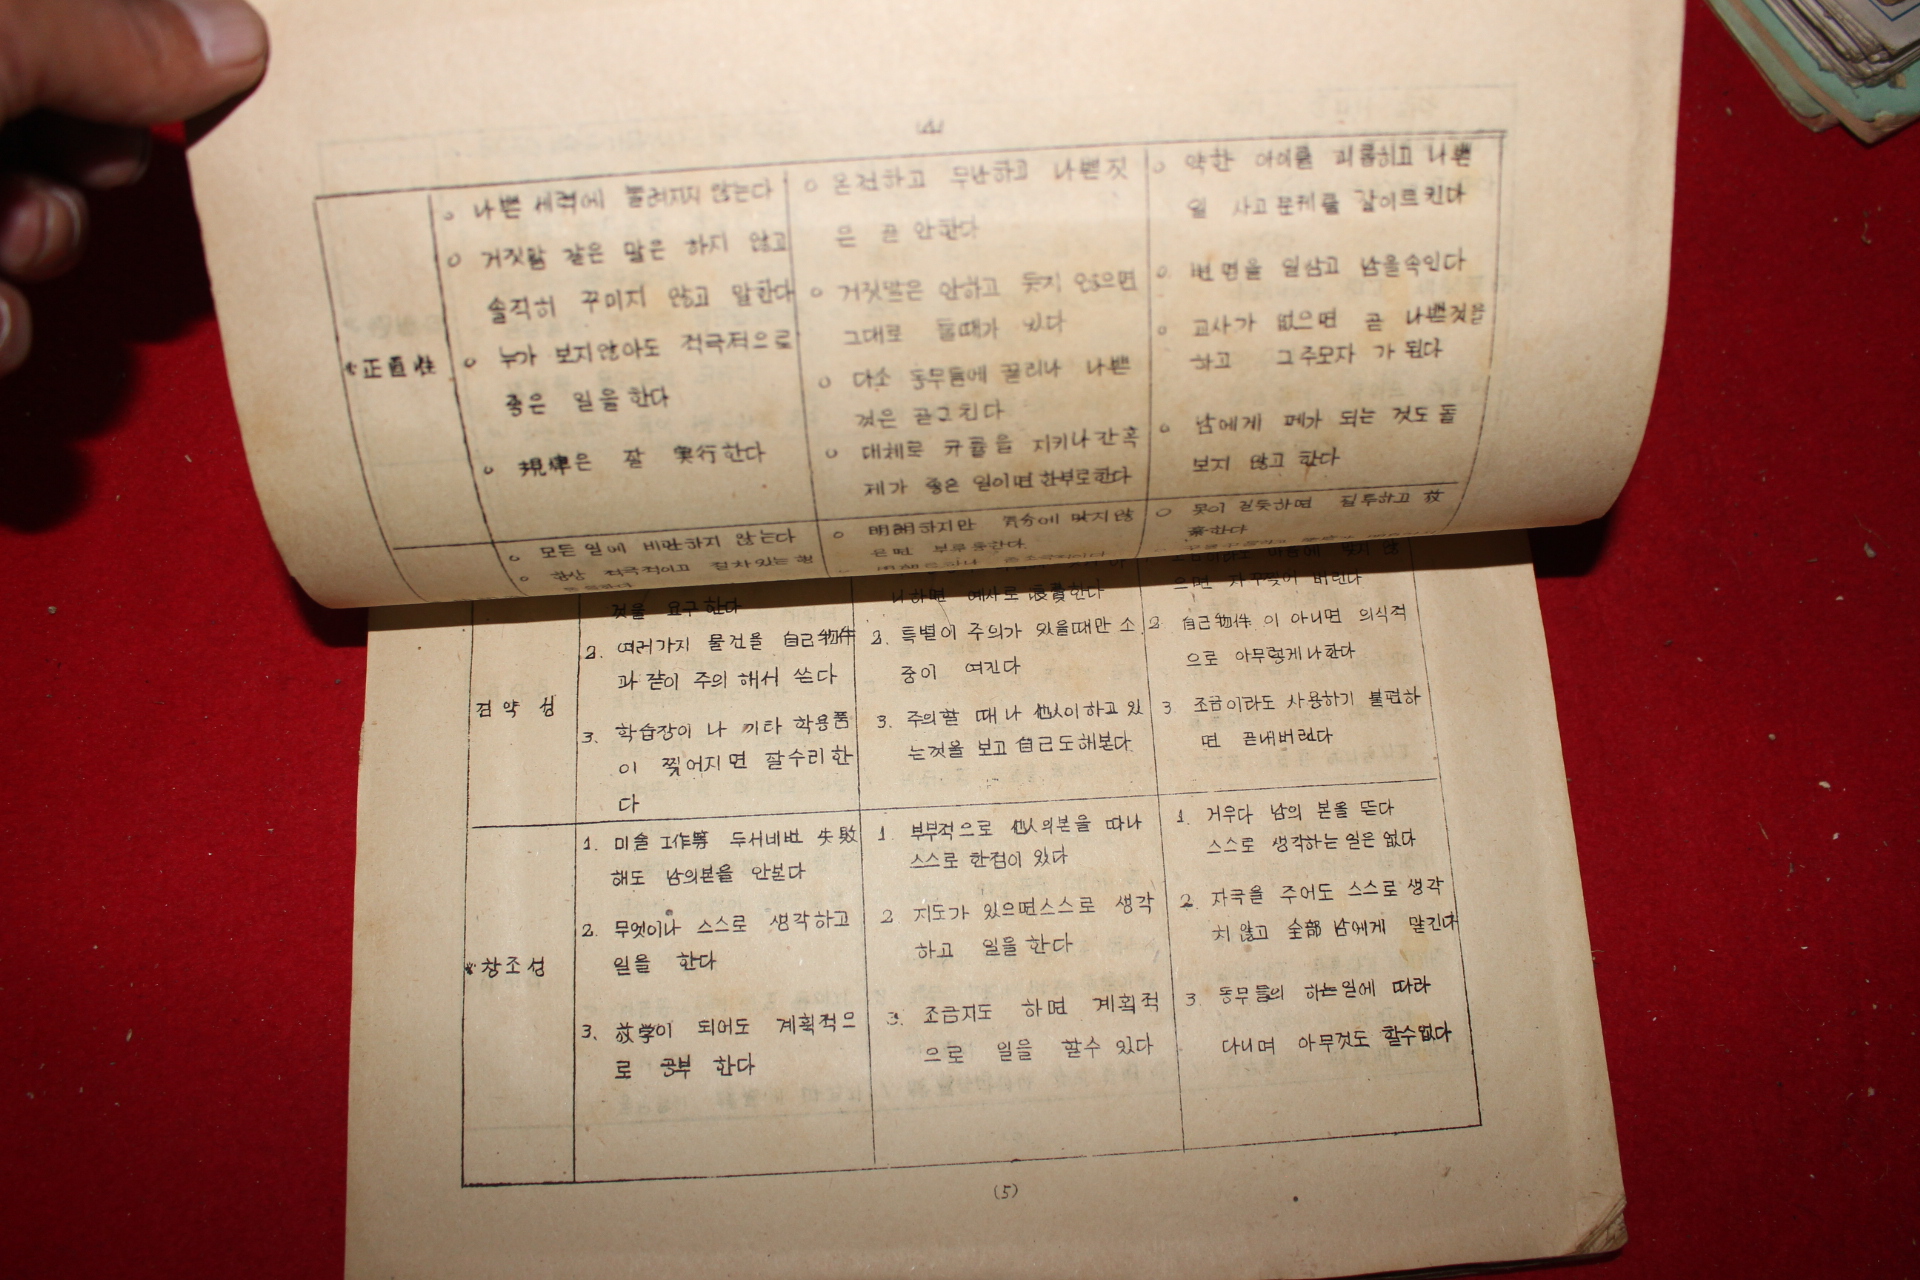 (4)
正直性
○ 나쁜 세력에 눌려지지 않는다
○ 거짓말 같은 말은 하지 않고
솔직히 꾸미지 않고 말한다
○ 누가 보지않아도 적극적으로
좋은 일을 한다
○ 規律은 잘 実行한다
○ 온전하고 무난하고 나쁜짓
은 곧 안한다
○ 거짓말은 안하고 묻지 않으면
그대로 둘때가 있다
○ 다소 동무들에 끌리나 나쁜
것은 곧그친다
○ 대체로 규률을 지키나 간혹
제가 좋은 일이면 한부로한다
○ 약한 아이를 괴롭히고 나쁜
일 사고문제를 잘이르킨다
○ 변명을 일삼고 남을속인다
○ 교사가 없으면 곧 나쁜짓을
하고 그주모자가 된다
○ 남에게 페가 되는 것도 돌
보지 않고 한다
○ 모든일에 비관하지 않는다
○ 항상 적극적이고 질차있는 행
○ 明朗하지만 気分에 맞지않
은면 부루퉁한다.
○ 못이 길듯하면 질투하고
것을 요구한다
나하면 예사로 浪費한다
으면 자꾸찢어 버린다
검약성
2. 여러가지 물건을 自己物件
과 같이 주의해서 쓴다
3. 학습장이나 끼타 학용품
이 찢어지면 잘수리한
다
2. 특별이 주의가 있을때만 소
중이 여긴다
3. 주의할 때나 他人이하고있
는것을 보고 自己도해본다
2 自己物件이 아니면 의식적
으로 아무렇게나한다
3 조금이라도 사용하기 불편하
면 곧내버린다
창조성
1. 미술工作等 두서네번 失敗
해도 남의본을 안본다
2. 무엇이나 스스로 생각하고
일을 한다
3. 放学이 되어도 계획적으
로 공부 한다
1. 부부적으로 他人의본을 따나
스스로 한점이 있다
2 지도가 있으면스스로 생각
하고 일을 한다
3. 조금지도 하면 계획적
으로 일을 할수 있다
1. 거우다 남의 본을 뜬다
스스로 생각하는 일은 없다
2. 자극을 주어도 스스로 생각
치 않고 全部 남에게 맡긴다
3. 동무들의 하는일에 따라
다니며 아무것도 할수없다
(5)